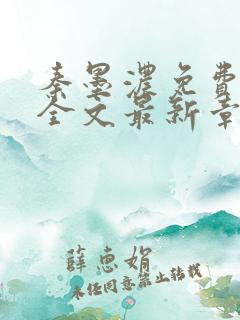 秦墨濃免費
全文最新章
薛惠娟
未经同意禁止转载